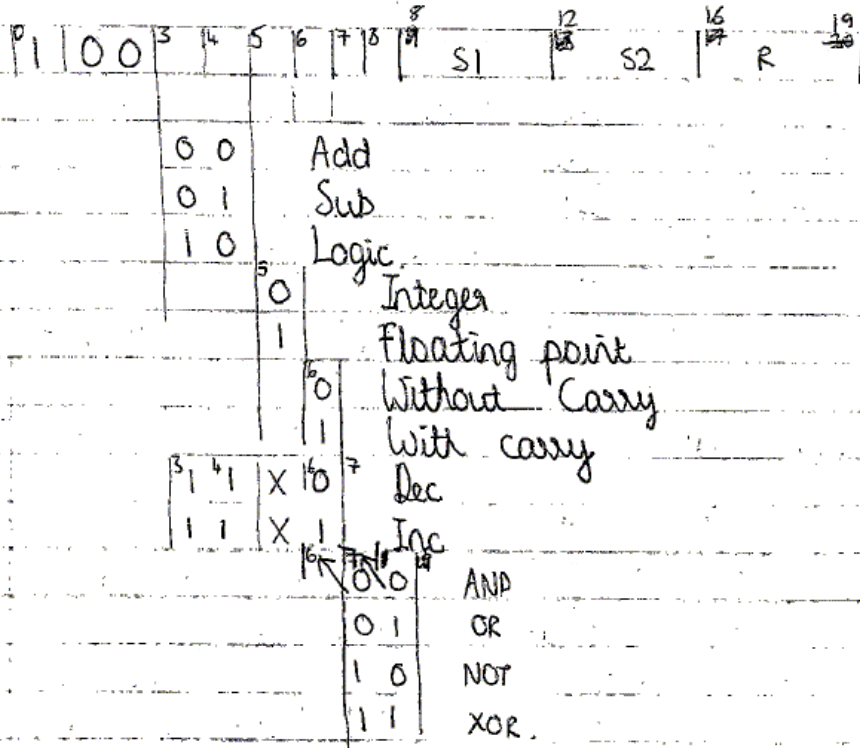 8 12 16 19
0 1 0 0 3 4 5 6 7 8 S1 S2 R
0 0 Add
0 1 Sub
1 0 Logic
5
0 Integer
1 Floating point
6 0 Without Carry
1 With carry
3 1 4 1 X 6 0 7 Dec
1 1 X 1 Inc
6 7
0 0 AND
0 1 OR
1 0 NOT
1 1 XOR.